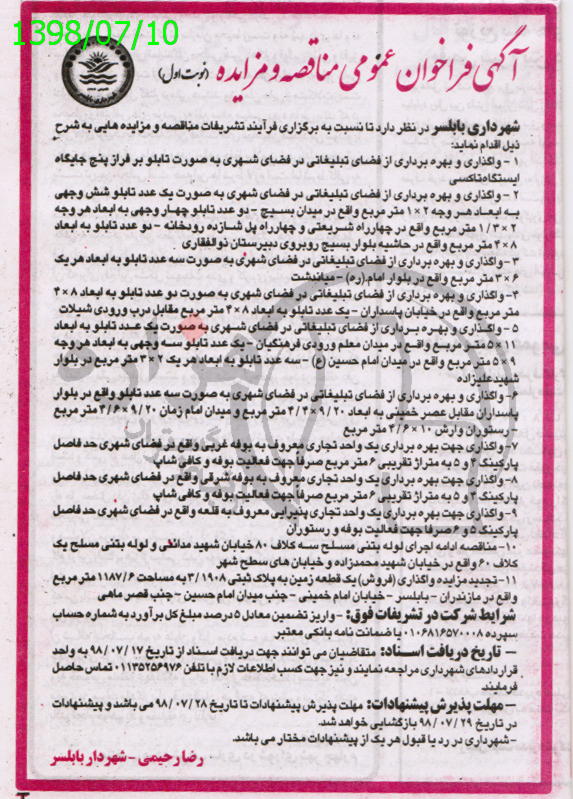 1398/07/10
آگهی فراخوان عمومی مناقصه و مزایده (نوبت اول)
شهرداری بابلسر در نظر دارد تا نسبت به برگزاری فرآیند تشریفات مناقصه و مزایده هایی به شرح
ذیل اقدام نماید:
۱- واگذاری و بهره برداری از فضای تبلیغاتی در فضای شهری به صورت تابلو بر فراز پنج جایگاه
ایستگاه تاکسی
۲- واگذاری و بهره برداری از فضای تبلیغاتی در فضای شهری به صورت یک عدد تابلو شش وجهی
به ابعاد هر وجه ۲×۱ متر مربع واقع در میدان بسیج - دو عدد تابلو چهار وجهی به ابعاد هر وجه
۲×۳/۱ متر مربع واقع در چهارراه شریعتی و چهارراه پل شازده رودخانه - دو عدد تابلو به ابعاد
۸×۴ متر مربع واقع در حاشیه بلوار بسیج روبروی دبیرستان ذوالفقاری
۳- واگذاری و بهره برداری از فضای تبلیغاتی در فضای شهری به صورت سه عدد تابلو به ابعاد هر یک
۶×۳ متر مربع واقع در بلوار امام (ره) - میاندشت
۴- واگذاری و بهره برداری از فضای تبلیغاتی در فضای شهری به صورت دو عدد تابلو به ابعاد ۸×۴
متر مربع واقع در خیابان پاسداران - یک عدد تابلو به ابعاد ۸×۴ متر مربع مقابل درب ورودی شیلات
۵- واگذاری و بهره برداری از فضای تبلیغاتی در فضای شهری به صورت یک عدد تابلو به ابعاد
۱۱×۵ متر مربع واقع در میدان معلم ورودی فرهنگیان - یک عدد تابلو سه وجهی به ابعاد هر وجه
۹×۵ متر مربع واقع در میدان امام حسین (ع) - سه عدد تابلو به ابعاد هر یک ۲×۳ متر مربع در بلوار
شهید علیزاده
۶- واگذاری و بهره برداری از فضای تبلیغاتی در فضای شهری به صورت سه عدد تابلو واقع در بلوار
پاسداران مقابل عصر خمینی به ابعاد ۹/۲۰×۴/۴ متر مربع و میدان امام زمان ۹/۲۰×۶/۴ متر مربع
- رستوران وارش ۱۰×۶/۴ متر مربع
۷- واگذاری جهت بهره برداری یک واحد تجاری معروف به بوفه غربی واقع در فضای شهری حد فاصل
پارکینگ ۴ و ۵ به متراژ تقریبی ۶ متر مربع صرفاً جهت فعالیت بوفه و کافی شاپ
۸- واگذاری جهت بهره برداری یک واحد تجاری معروف به بوفه شرقی واقع در فضای شهری حد فاصل
پارکینگ ۴ و ۵ به متراژ تقریبی ۶ متر مربع صرفاً جهت فعالیت بوفه و کافی شاپ
۹- واگذاری جهت بهره برداری یک واحد تجاری پذیرایی معروف به قلعه واقع در فضای شهری حد فاصل
پارکینگ ۵ و ۶ صرفاً جهت فعالیت بوفه و رستوران
۱۰- مناقصه ادامه اجرای لوله بتنی مسلح سه کلاف ۸۰ خیابان شهید مدائنی و لوله بتنی مسلح یک
کلاف ۶۰ واقع در خیابان شهید محمدزاده و خیابان های سطح شهر
۱۱- تجدید مزایده واگذاری (فروش) یک قطعه زمین به پلاک ثبتی ۳/۱۹۰۸ به مساحت ۱۱۸۷/۶ متر مربع
واقع در مازندران - بابلسر - خیابان امام خمینی - جنب میدان امام حسین - جنب قصر ماهی
شرایط شرکت در تشریفات فوق: - واریز تضمین معادل ۵ درصد مبلغ کل برآورد به شماره حساب
سپرده ۰۱۰۶۸۱۶۵۷۰۰۰۸ یا ضمانت نامه بانکی معتبر
- تاریخ دریافت اسناد: متقاضیان می توانند جهت دریافت اسناد از تاریخ ۹۸/۰۷/۱۷ به واحد
قراردادهای شهرداری مراجعه نمایند و نیز جهت کسب اطلاعات لازم با تلفن ۰۱۱۳۵۲۵۶۹۷۶ تماس حاصل
فرمایند
- مهلت پذیرش پیشنهادات: مهلت پذیرش پیشنهادات تا تاریخ ۹۸/۰۷/۲۸ می باشد و پیشنهادات
در تاریخ ۹۸/۰۷/۲۹ بازگشایی خواهد شد.
- شهرداری در رد یا قبول هر یک از پیشنهادات مختار می باشد.
رضا رحیمی - شهردار بابلسر